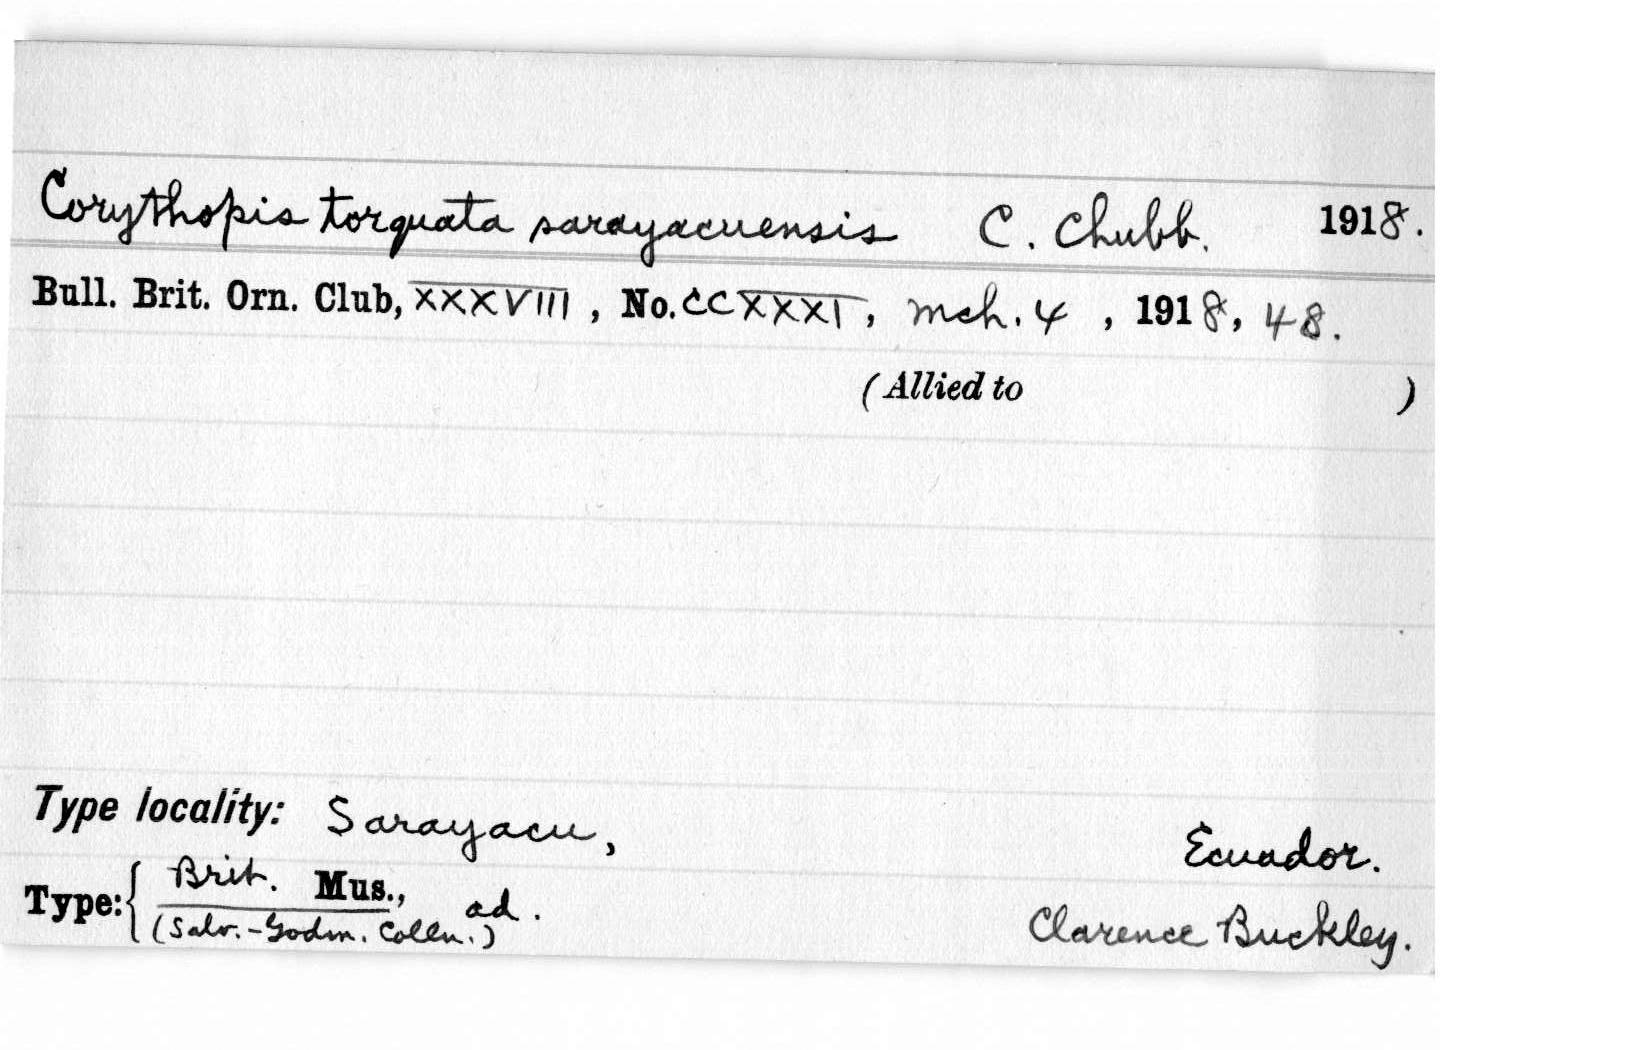 Corythopis torquata sarayacuensis C. Chubb. 1918.
Bull. Brit. Orn. Club, XXXVIII, No. CCXXXI, Mch. 4, 1918, 48.
(Allied to )
Type locality: Sarayacu, Ecuador.
Type: { Brit. Mus., ad.
(Salv.-Godm. Colln.) Clarence Buckley.